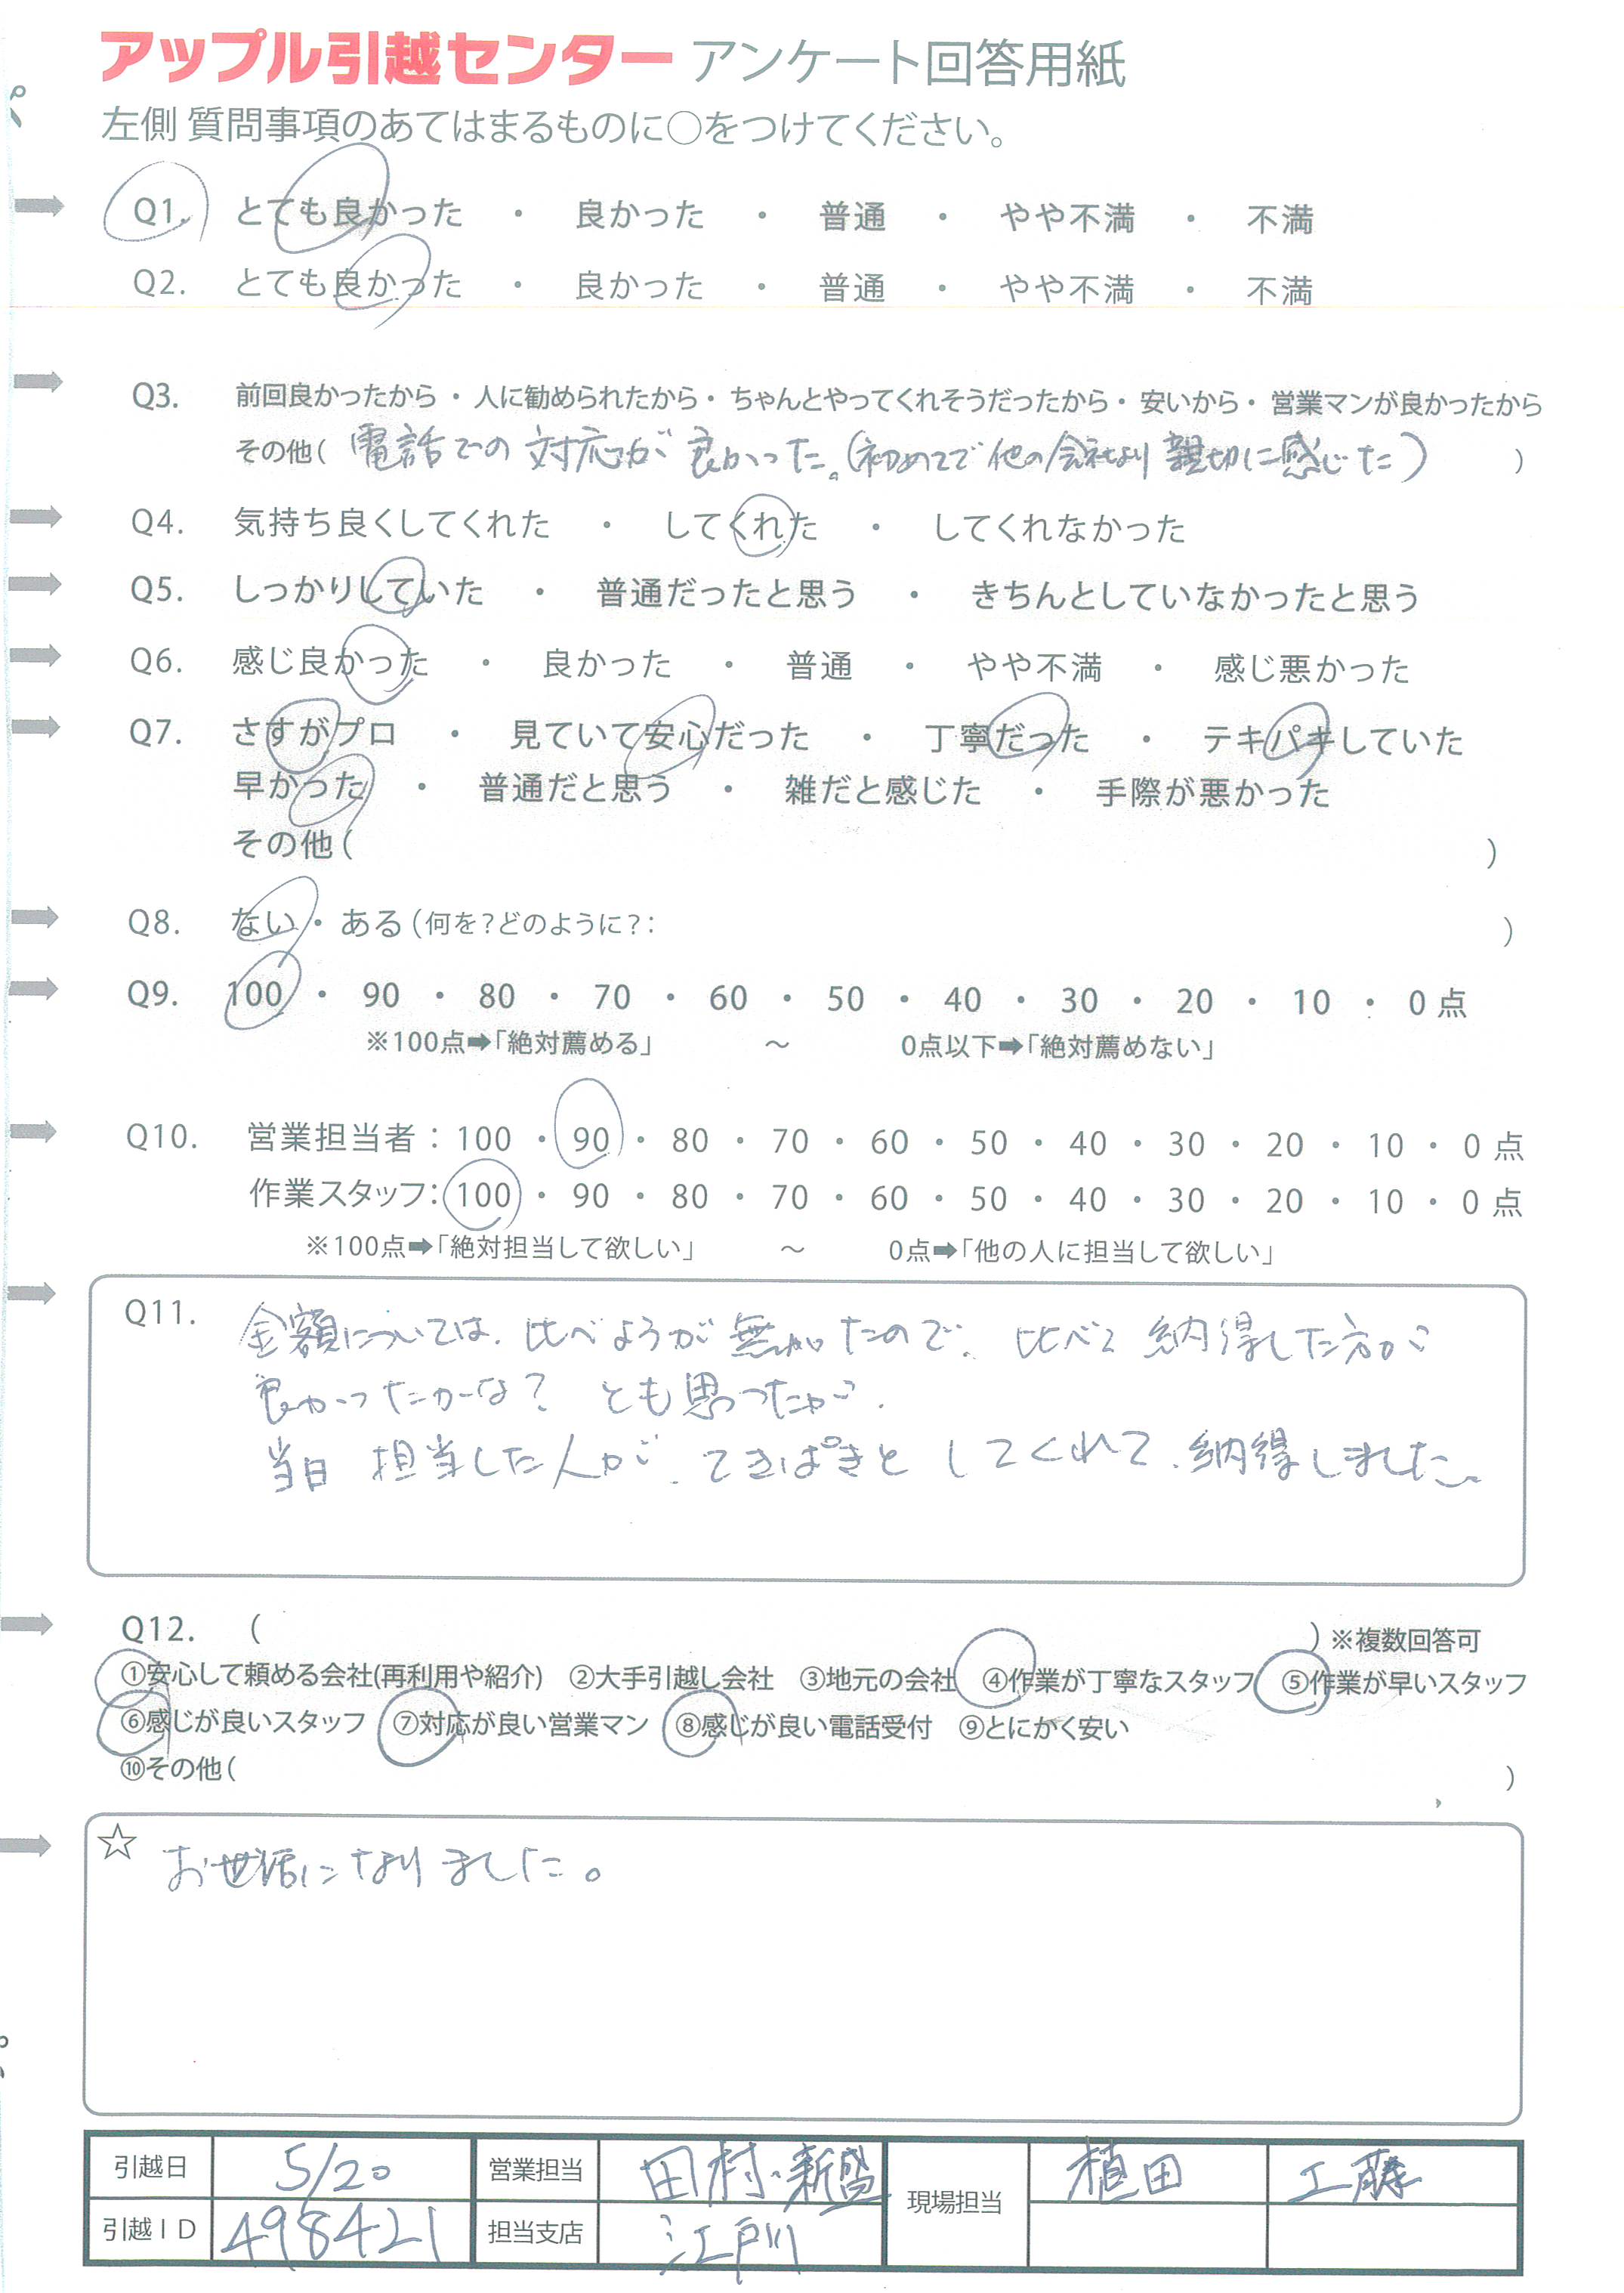 アップル引越センター アンケート回答用紙
左側 質問事項のあてはまるものに○をつけてください。
Q1. とても良かった ・ 良かった ・ 普通 ・ やや不満 ・ 不満
Q2. とても良かった ・ 良かった ・ 普通 ・ やや不満 ・ 不満
Q3. 前回良かったから・人に勧められたから・ちゃんとやってくれそうだったから・安いから・営業マンが良かったから
その他( 電話での対応が良かった。(初めてで他の会社より親切に感じた) )
Q4. 気持ち良くしてくれた ・ してくれた ・ してくれなかった
Q5. しっかりしていた ・ 普通だったと思う ・ きちんとしていなかったと思う
Q6. 感じ良かった ・ 良かった ・ 普通 ・ やや不満 ・ 感じ悪かった
Q7. さすがプロ ・ 見ていて安心だった ・ 丁寧だった ・ テキパキしていた
早かった ・ 普通だと思う ・ 雑だと感じた ・ 手際が悪かった
その他( )
Q8. ない・ある(何を?どのように?: )
Q9. 100 ・ 90 ・ 80 ・ 70 ・ 60 ・ 50 ・ 40 ・ 30 ・ 20 ・ 10 ・ 0点
※100点➡「絶対薦める」 ～ 0点以下➡「絶対薦めない」
Q10. 営業担当者:100 ・ 90 ・ 80 ・ 70 ・ 60 ・ 50 ・ 40 ・ 30 ・ 20 ・ 10 ・ 0点
作業スタッフ:100 ・ 90 ・ 80 ・ 70 ・ 60 ・ 50 ・ 40 ・ 30 ・ 20 ・ 10 ・ 0点
※100点➡「絶対担当して欲しい」 ～ 0点➡「他の人に担当して欲しい」
Q11. 金額については、比べようが無かったので、比べて納得した方が
良かったかーな? とも思ったが、
当日 担当した人が、てきぱきとしてくれて、納得しました。
Q12. ( ) ※複数回答可
①安心して頼める会社(再利用や紹介) ②大手引越し会社 ③地元の会社 ④作業が丁寧なスタッフ ⑤作業が早いスタッフ
⑥感じが良いスタッフ ⑦対応が良い営業マン ⑧感じが良い電話受付 ⑨とにかく安い
⑩その他( )
☆ お世話になりました。
引越日 5/20 営業担当 田村・新盛 現場担当 植田 工藤
引越ID 498421 担当支店 江戸川